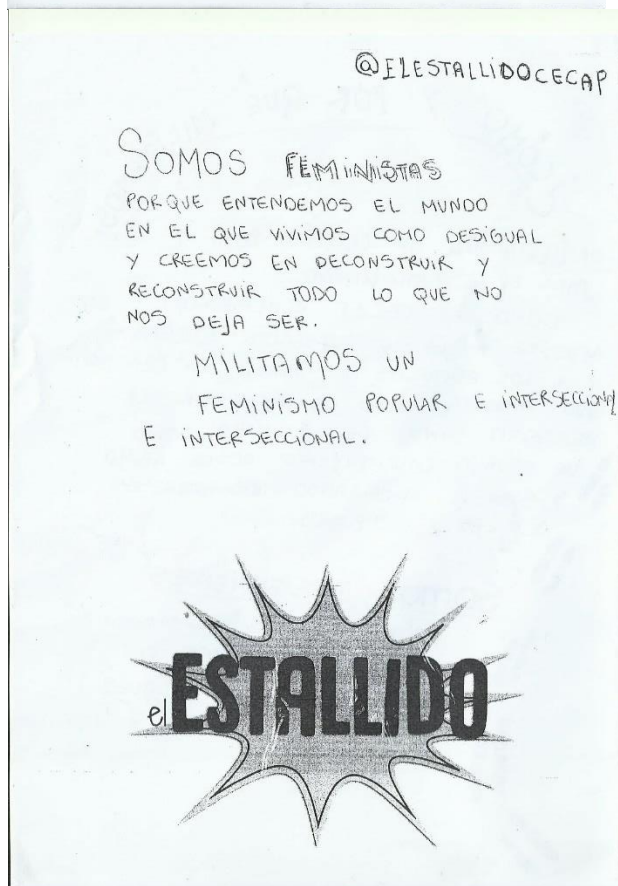 @ELESTALLIDOCECAP
SOMOS FEMINISTAS
PORQUE ENTENDEMOS EL MUNDO
EN EL QUE VIVIMOS COMO DESIGUAL
Y CREEMOS EN DECONSTRUIR Y
RECONSTRUIR TODO LO QUE NO
NOS DEJA SER.
MILITAMOS UN
FEMINISMO POPULAR E INTERSECCIONAL
E INTERSECCIONAL.
el ESTALLIDO